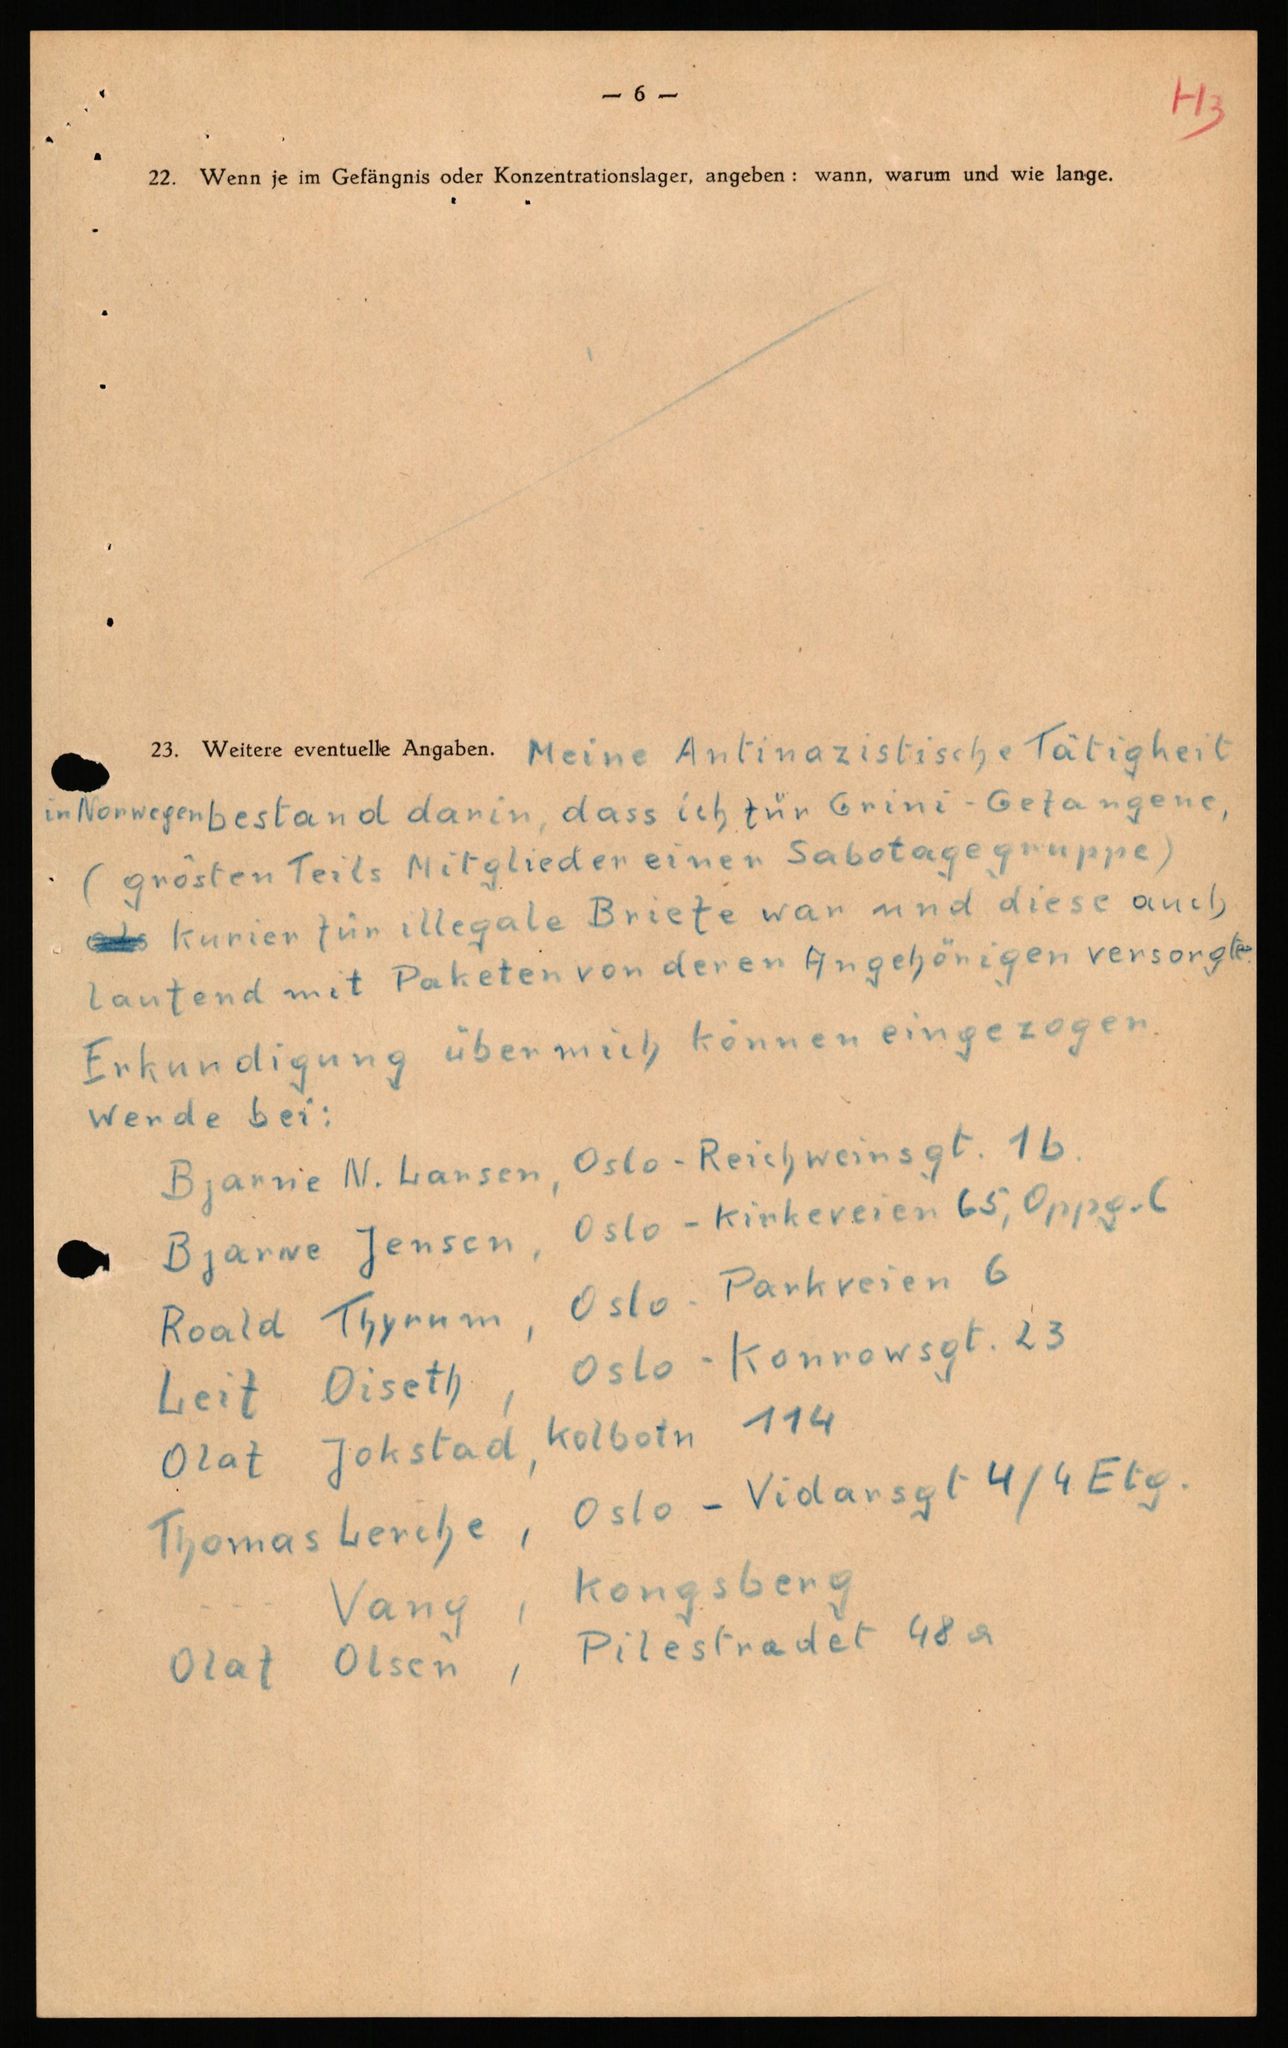 — 6 —
H3
22. Wenn je im Gefängnis oder Konzentrationslager, angeben: wann, warum und wie lange.
23. Weitere eventuelle Angaben. Meine Antinazistische Tätigkeit
in Norwegen bestand darin, dass ich für Grini-Gefangene,
(grösten Teils Mitglieder einer Sabotagegruppe)
als kurier für illegale Briefe war und diese auch
laufend mit Paketen von deren Angehörigen versorgte.
Erkundigung über mich können eingezogen
werde bei:
Bjarne N. Larsen, Oslo - Reichweinsgt. 1b.
Bjarne Jensen, Oslo - Kirkeveien 65, Oppg. C
Roald Thyrum, Oslo - Parkveien 6
Leif Oiseth, Oslo - Konrowsgt. 23
Olaf Jokstad, Kolbotn 114
Thomas Lerche, Oslo - Vidarsgt 4/4 Etg.
--- Vang, Kongsberg
Olaf Olsen, Pilestradet 48a